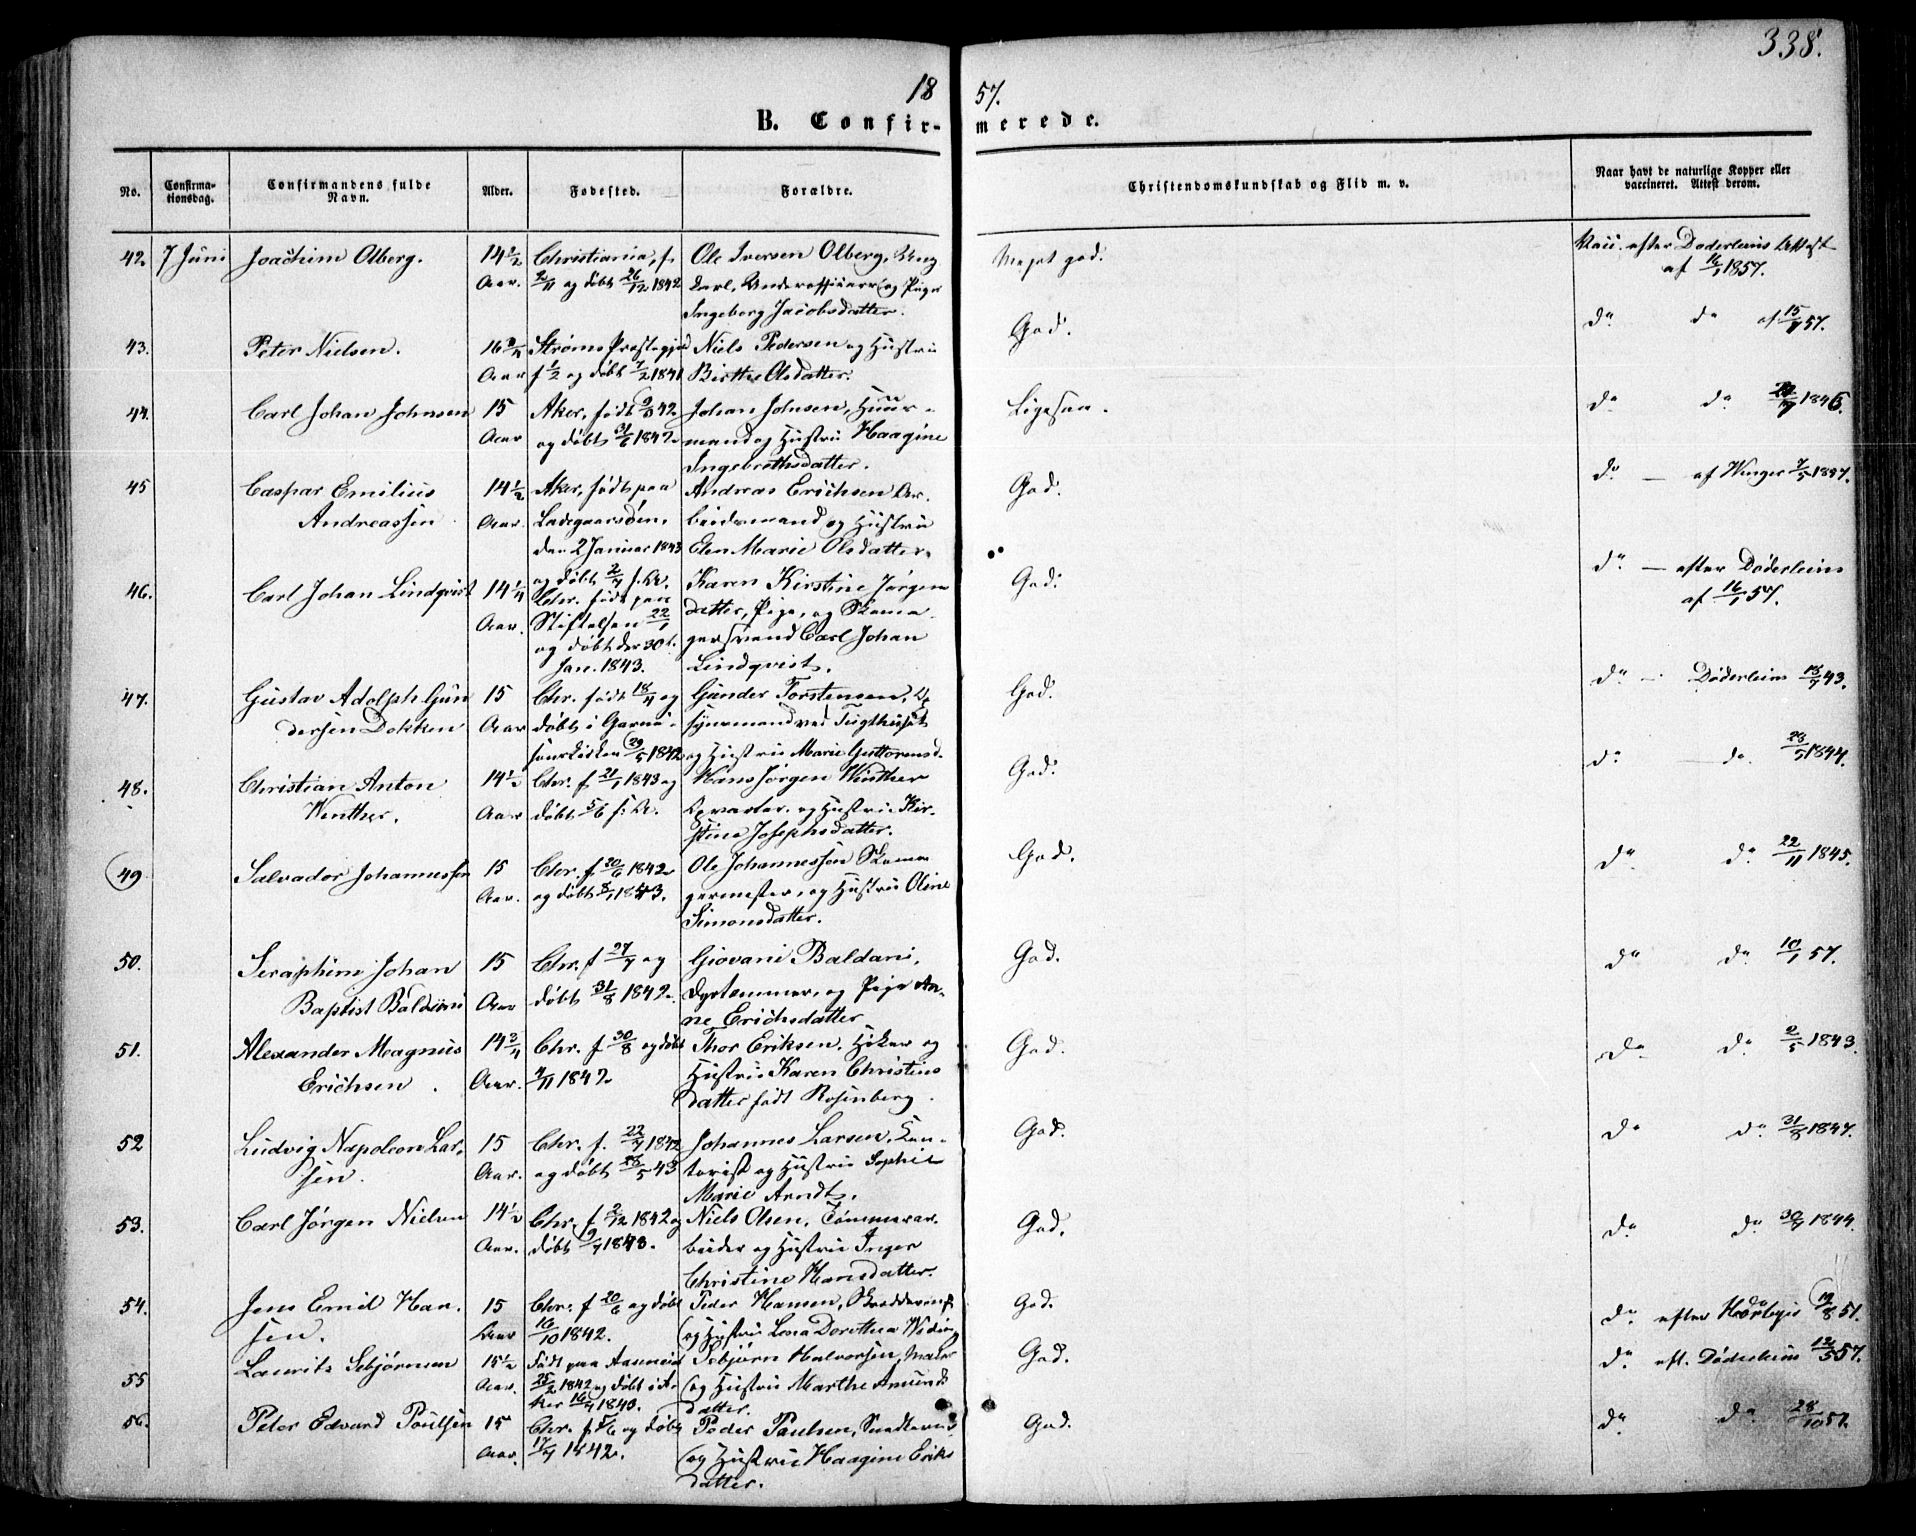 338.
18 57.
B. Confirmerede.
No. Confirmationsdag. Confirmandens fulde Navn. Alder. Fødested. Forældre. Christendomskundskab og Flid m. v. Naar havt de naturlige Kopper eller vaccineret. Attest derom.
42. 7 Juni Joachim Olberg. 14 1/2 Christiania, f. Ole Iversen Olberg, Ung Meget god. Vacc. efter Døderleins Attest
Aar. 2/11 og døbt 26/12 1842 karl, Underofficeer og Pige af 16/1 1857.
Ingeborg Jacobsdatter.
43. Peter Nielsen. 16 Strøms Præstegjed Niels Pedersen og Hustru God. do do af 15/ 57.
Aar f 1/2 og døbt 7/2 1841 Birthe Olsdatter.
44. Carl Johan Johnsen 15 Aker, født 42. Johan Johnsen, Huus- Ligesaa. do do 1846.
Aar og døbt 31/ 1842. mand og Hustru Haagine
Ingebrethsdatter.
45 Caspar Emilius 14 1/2 Aker, født paa Andreas Erichsen Ar- God. do — af Winger 7/5
Andreassen Aar. Ladegaardsøen, beidsmand og Hustru
den 2 Januar 1843 Elen Marie Olsdatter.
og døbt 2/7 s. A.
46. Carl Johan Lindqvist 14 1/4 Chr. født paa Karen Kirstine Jørgens God. do — efter Døderleins
Aar. Stiftelsen 22/1 datter, Pige, og Skoma- af 16/1 57.
og døbt den 30t gersvend Carl Johan
Jan. 1843. Lindqvist.
47. Gustav Adolph Gun 15 Chr. født 18/4 og Gunder Torstensen, Op God. do — Døderlein 43.
dersen Dokken Aar døbt i Garni- synsmand ved Tugthuset
sonskirken 29/5 1842 og Hustru Marie
48. Christian Anton 14 1/2 Chr. f. 21/1 1843 og Hans Jørgen Winther God. do do 1844.
Winther. Aar døbt 5/6 s. A. og Hustru Kir-
stine Josephsdatter.
49 Salvador Johannessen 15 Chr. f 20/6 1842 Ole Johannessen Skoma God. do do 22/11 1845.
Aar. og døbt 8/ 1843. germester, og Hustru Oline
Simonsdatter.
50. Seraphim Johan 15 Chr. f 27/7 og Giovani Baldani, God. do do 10/1 57.
Baptist Baldani Aar døbt 31/8 1842. Dyrtæmmer, og Pige An-
ne Erichsdatter
51. Alexander Magnus 14 3/4 Chr. f. 30/8 og døbt Thor Eriksen, Høker og God. do do 2/5 1843.
Erichsen Aar. /11 1842. Hustru Karen Christens
datter født Rosenberg.
52 Ludvig Napoleon Lar- 15 Chr. f. 22/7 1842 Johannes Larsen, Kon- God. do do 31/8 1847.
sen. Aar. og døbt 28/5 43 torist og Hustru Sophie
Marie Arndt.
53. Carl Jørgen Nielsen 14 1/2 Chr. f. 2/12 1842 og Niels Olsen, Tømmerar- God. do do 1844.
Aar. døbt 1843. beider og Hustru Inger
Christine Hansdatter.
54. Jens Emil Han- 15 Chr. f 20/6 og døbt Peder Hansen, God. do efter 19/8 51.
sen. Aar 16/10 1842. og Hustru Lena Dorothea
55 Lauritz Tebjørnsen 15 1/2 Født paa Tebjørn Halvorsen, Maler God. do eft. Døderlein 12/5 57.
Aar. 25/2 1842 og døbt i A- og Hustru Marthe Amunds
ker 16/4 1843. datter.
56. Peter Edvard Poulsen 15 Chr. f. 5/6 og døbt Peder Paulsen, God. do do 28/10 57.
Aar. 17/7 1842. og Hustru Haagine Eriks
datter.